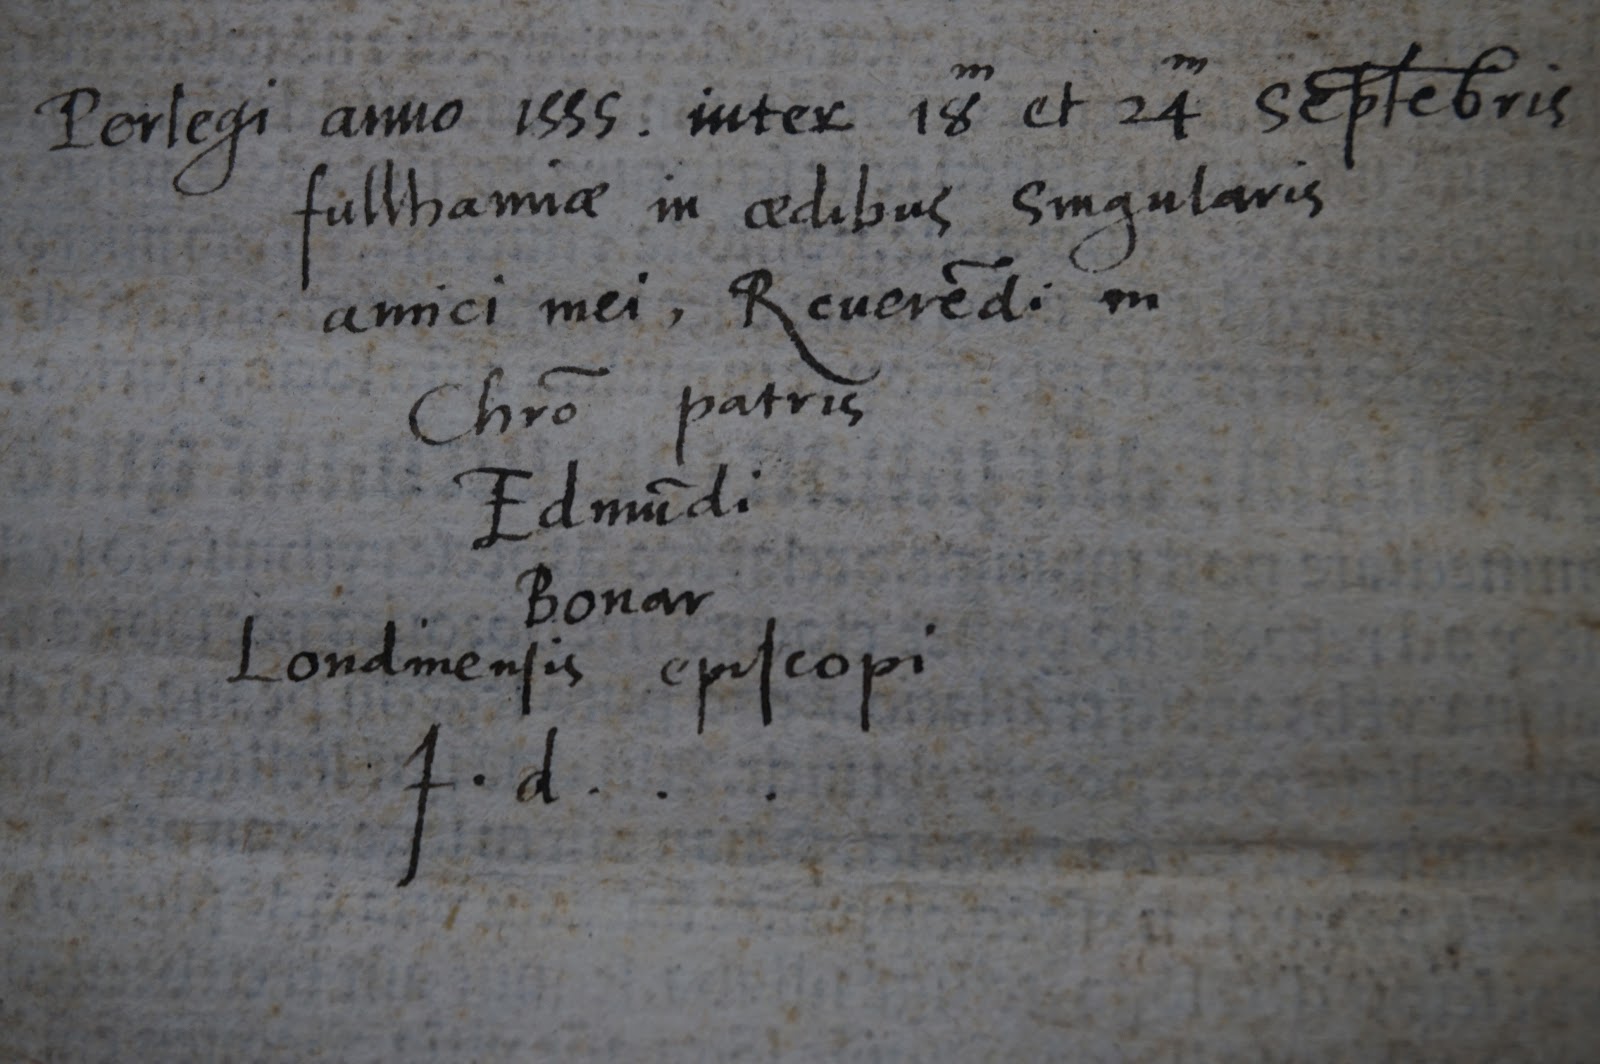 Perlegi anno 1555. inter 18^m et 24^m Septēbris
fullhamiæ in ædibus singularis
amici mei, Reuerēdi in
Chrō patris
Edmūdi
Bonar
Londinensis episcopi
J. d. . .